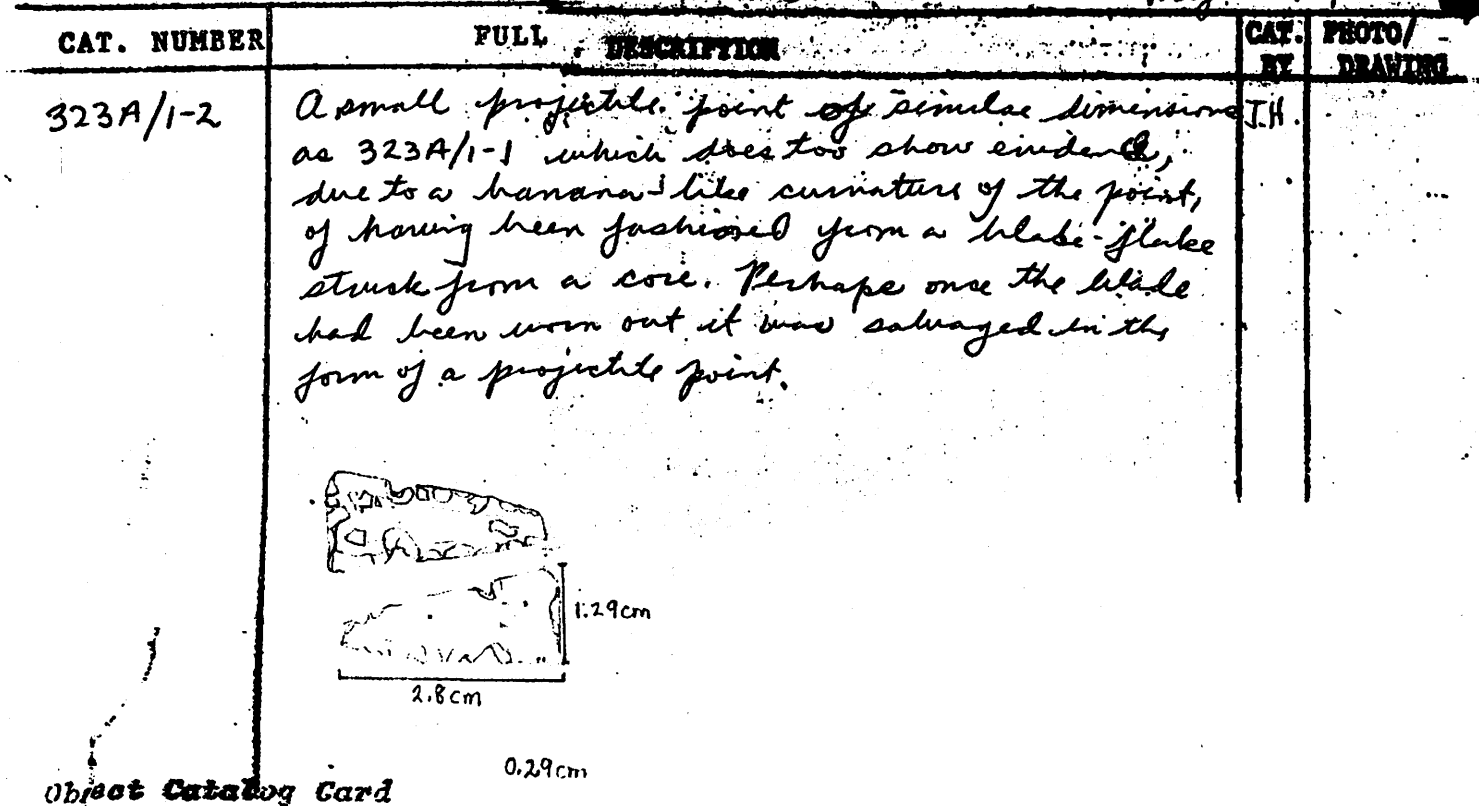 CAT. NUMBER FULL DESCRIPTION CAT. BY PHOTO/ DRAWING
323A/1-2 A small projectile point of similar dimensions J.H.
as 323A/1-1 which does too show evidence,
due to a banana-like curvature of the point,
of having been fashioned from a blade-flake
struck from a core. Perhaps once the blade
had been worn out it was salvaged in the
form of a projectile point.
1.29cm
2.8cm
0.29cm
Object Catalog Card